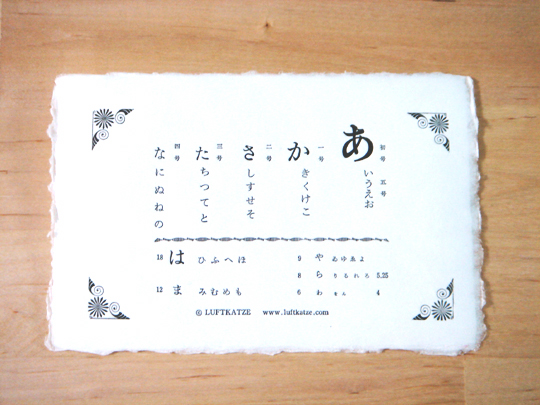 初号 五号
あいうえお
一号
かきくけこ
二号
さしすせそ
三号
たちつてと
四号
なにぬねの
18 は ひふへほ
12 ま みむめも
9 や ゐゆゑよ
8 ら りるれろ 5.25
6 わ をん 4
© LUFTKATZE www.luftkatze.com